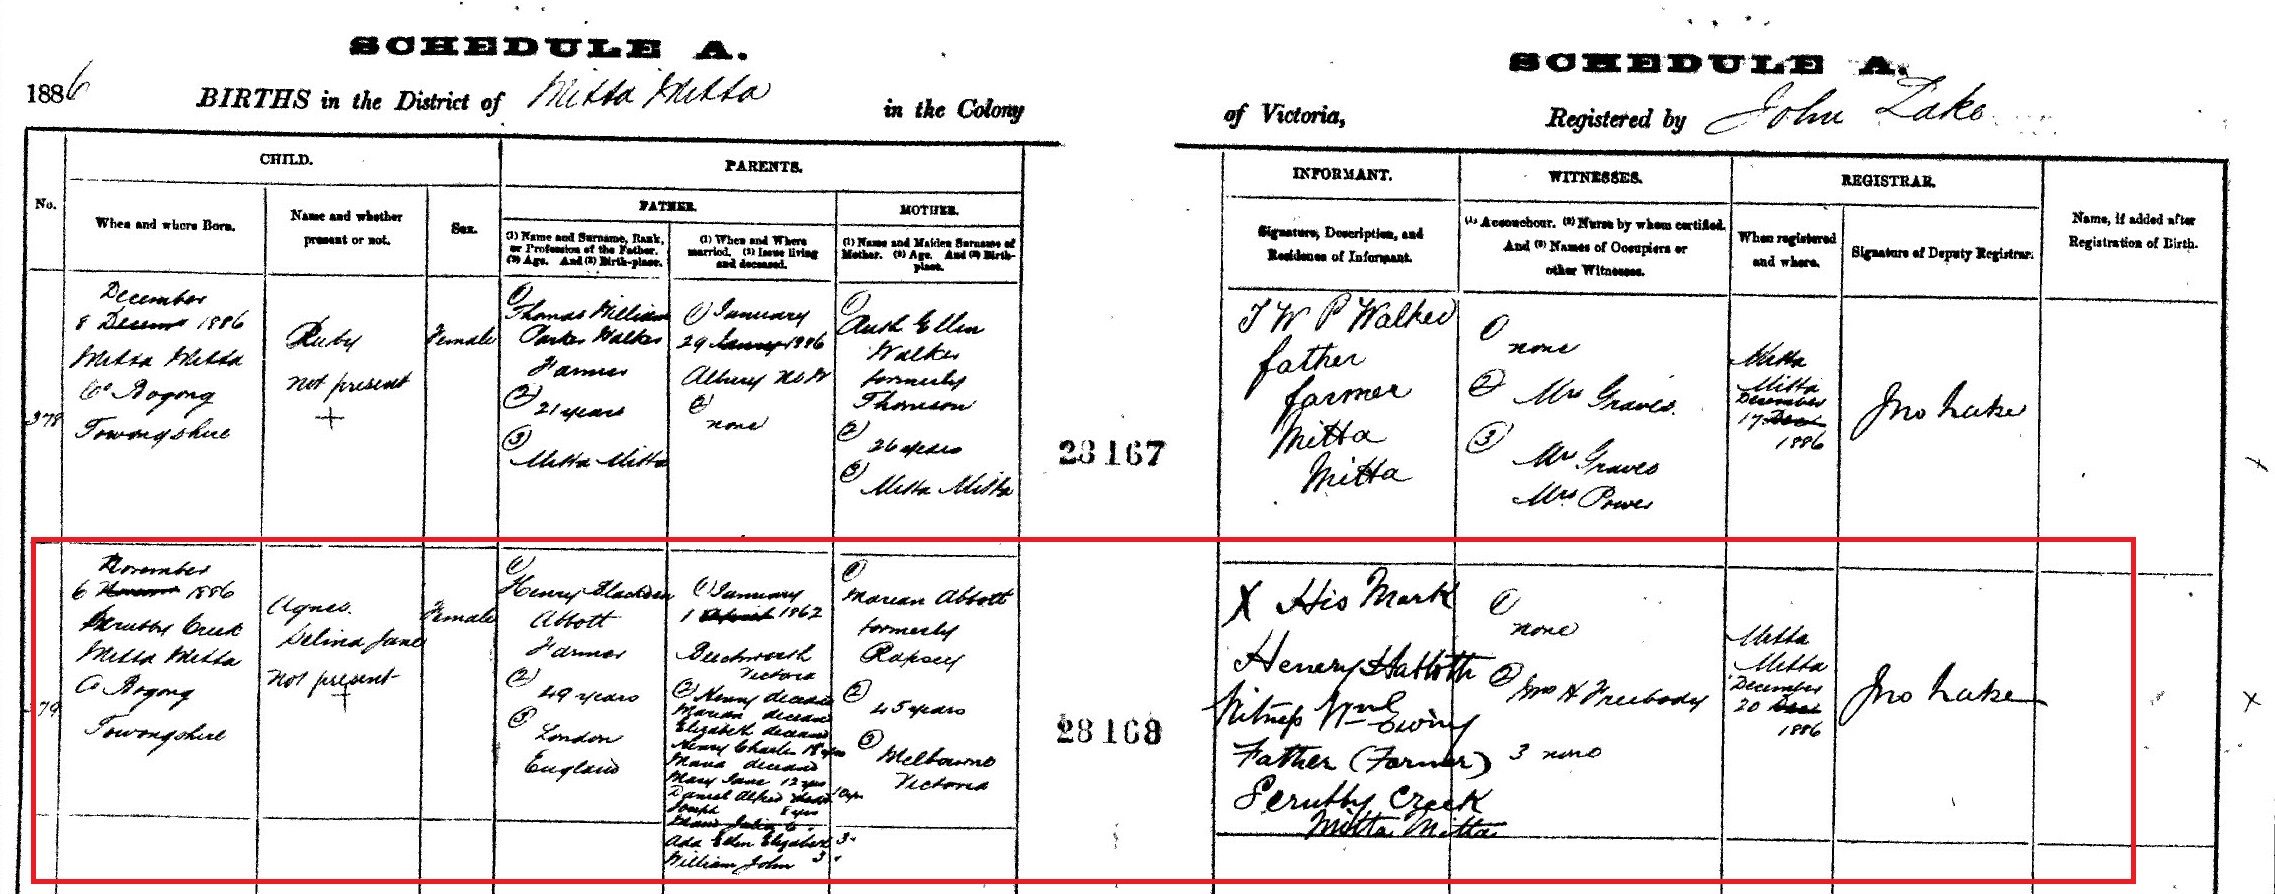 SCHEDULE A.
SCHEDULE A.
1886 BIRTHS in the District of Mitta Mitta in the Colony
of Victoria, Registered by John Lake
No.
CHILD.
When and where Born.
Name and whether
present or not.
Sex.
PARENTS.
FATHER.
(1) Name and Surname, Rank,
or Profession of the Father.
(2) Age. And (3) Birth-place.
(1) When and Where
married. (2) Issue living
and deceased.
MOTHER.
(1) Name and Maiden Surname of
Mother. (2) Age. And (3) Birth-
place.
INFORMANT.
Signature, Description, and
Residence of Informant.
WITNESSES.
(1) Accoucheur. (2) Nurse by whom certified.
And (3) Names of Occupiers or
other Witnesses.
REGISTRAR.
When registered
and where.
Signature of Deputy Registrar.
Name, if added after
Registration of Birth.
378
December
8 1886
Mitta Mitta
Co Bogong
Towong shire
Ruby
not present
+
Female
(1)
Thomas William
Parker Walker
Farmer
(2)
21 years
(3)
Mitta Mitta
(1) January
29 1886
Albury NSW
(2)
none
(1)
Ruth Ellen
Walker
formerly
Thomson
(2)
26 years
(3)
Mitta Mitta
28167
T W P Walker
father
farmer
Mitta
Mitta
(1)
none
(2) Mrs Graves
(3)
Mr Graves
Mrs Power
Mitta
Mitta
December
17 Dec
1886
Jno Lake
379
November
6 1886
Scrubby Creek
Mitta Mitta
Co Bogong
Towong shire
Agnes
Selina Jane
not present
+
Female
(1)
Henry
Abbott
Farmer
(2)
49 years
(3)
London
England
(1) January
1 1862
Beechworth
Victoria
(2) Henry deceased
Marian deceased
Elizabeth deceased
Henry Charles 18 years
Maria deceased
Mary Jane 12 yrs
Daniel Alfred 10 yrs
Joseph 8 yrs
Julia 6
Ada Ellen Elizabeth 3
William John 3
(1)
Marian Abbott
formerly
Rapsey
(2)
45 years
(3)
Melbourne
Victoria
28168
X His Mark
Henery H abbotth
Witness Wm Ewing
Father (Farmer)
Scrubby Creek
Mitta Mitta
(1)
none
(2) Mrs H Freebody
3 none
Mitta
Mitta
December
20 Dec
1886
Jno Lake